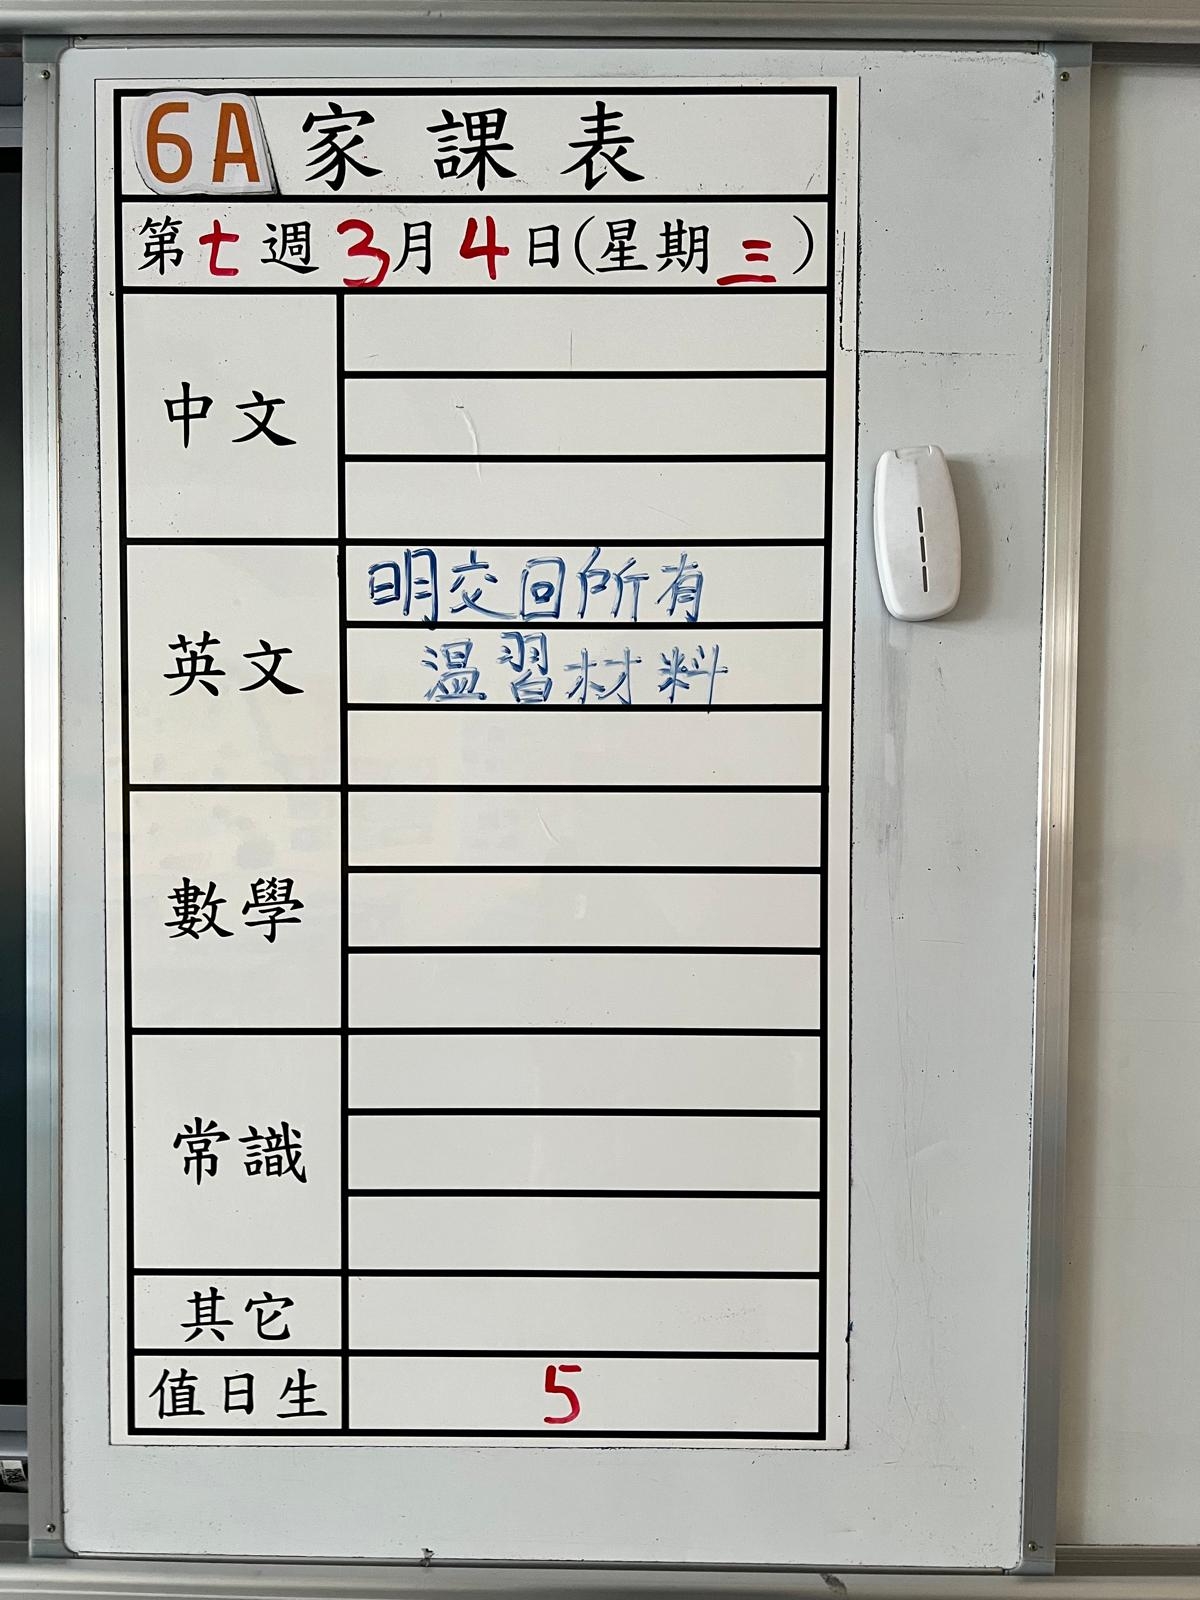 6A 家課表
第七週 3月4日(星期三)
中文
英文
明交回所有
温習材料
數學
常識
其它
值日生 5